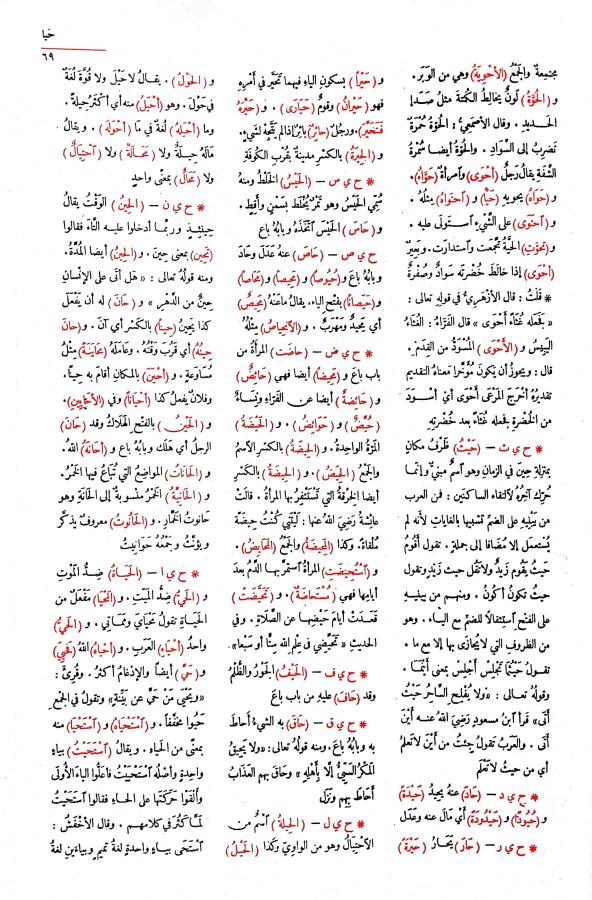 حَيا
٦٩
مجتمِعةٌ والجَمْعُ (الأَحْوِيَةُ) وهي من الوَبَرِ.
و (الحُوَّةُ) لَوْنٌ يخالِطُ الكُمْتَةَ مثلُ صَدَإِ
الحديدِ. وقال الأصمعيُّ: الحُوَّةُ حُمْرَةٌ
تَضرِبُ إلى السَّوَادِ. والحُوَّةُ أيضا سُمْرَةُ
الشَّفَةِ يقالُ رَجُلٌ (أَحْوَى) وامرأةٌ (حَوَّاءُ).
و (حَوَاهُ) يحويهِ (حَيًّا) و (اَحتَوَاهُ) مِثلُهُ.
و (اَحتَوَى) على الشَّيْءِ استولَى عليه.
و (تحوَّت) الحَيَّةُ تَجَمَّعت واستدارَت. وبعيرٌ
(أَحْوَى) إذا خالطَ خُضْرتَه سَوادٌ وصُفرةٌ
* قلتُ: قال الأزهَرِيُّ في قولهِ تعالى:
«فجعلَه غُثَاءً أَحْوَى» قال الفَرَّاءُ: الغُثَاءُ
اليبيسُ و (الأَحْوَى) المُسْوَدُّ من القِدَمِ.
قال: ويجوزُ أن يَكونَ مُؤَخَّرا معناهُ التقديم
تقديرُهُ أخرَجَ المَرْعَى أَحْوَى أيْ أَسْوَدَ
من الخُضرةِ فجعلَه غُثاءً بعد خُضْرتِهِ
* ح ي ث – (حَيْثُ) ظَرْفُ مكانٍ
بمنزلةِ حينَ في الزمانِ وهو اسمٌ مبنيٌّ وإنما
حُرِّكَ آخِرُه لالتقاءِ الساكنَينِ: فمن العرب
من يبنِيهِ على الضمِّ تشبيها بالغاياتِ لأنه لم
يُستعمَل إلا مُضافًا إلى جملةٍ. تقولُ أَقُومُ
حيثُ يقُومُ زَيدٌ ولا تَقُلْ حيثُ زيدٍ وتقولُ
حيثُ تَكونُ أكُونُ. ومنهم من يبنيهِ
على الفتحِ استِثقالًا للضمِّ مع الياءِ. وهو
من الظروفِ التي لا يُجازَى بها إلا مع ما.
تقولُ حَيْثُما تجْلِسْ أَجْلِسْ بمعنى أَيْنَما.
وقولُه تعالى: «ولا يُفْلِحُ السَّاحِرُ حَيْثُ
أَتَى» قرأ ابنُ مسعودٍ رَضِيَ اللهُ عنه أَيْنَ
أَتَى. والعَرَبُ تقولُ جِئتُ من أَيْنَ لا تَعلَمُ
أي من حيثُ لا تَعْلَمُ
* ح ي د – (حَادَ) عنه يحِيدُ (حَيْدَةً)
و (حُيُودًا) و (حَيْدُودَةً) أي مَالَ عنه وعَدَل
* ح ي ر – (حَارَ) يَحَارُ (حَيْرَةً)
و (حَيْرًا) بسكونِ الياءِ فيهِما تحيَّر في أَمْرِهِ
فهو (حَيْرانُ) وقومٌ (حَيَارَى). و (حَيَّرَهُ
فتَحَيَّر). ورجُلٌ (حائِرٌ) بائرٌ إذا لم يَتَّجِهْ لشيءٍ.
و (الحِيرَةُ) بالكسْرِ مدينةٌ بقُرْبِ الكُوفَةِ
* ح ي س – (الحَيْسُ) الخَلْطُ ومنه
سُمِّيَ الحَيْسُ وهو تَمْرٌ يُخْلَطُ بسَمْنٍ وأَقِطٍ.
و (حَاسَ) الحَيْسَ اتَّخَذَهُ وبابُهُ باع
ح ي ص – (حَاصَ) عنه عَدَلَ وحَادَ
وبابُهُ باعَ و (حُيُوصًا) و (مَحِيصًا) و (مَحَاصًا)
و (حَيَصَانًا) بفتحِ الياءِ. يقالُ ما عنه (مَحِيصٌ)
أي مَحِيدٌ ومَهْرَبٌ. و (الاَنحِيَاصُ) مِثلُهُ
* ح ي ض – (حاضَت) المرأةُ من
باب باعَ و (مَحِيضًا) أيضا فهي (حائِضٌ)
و (حَائِضةٌ) أيضا عن الفرَّاءِ ونِساءٌ
(حُيَّضٌ) و (حَوَائِضُ). و (الحَيْضَةُ)
المَرَّةُ الواحدةُ. و (الحِيضَةُ) بالكسْرِ الاسمُ
والجمعُ (الحِيَضُ). و (الحِيضَةُ) بالكَسْرِ
أيضا الخِرْقةُ التي تَسْتَثْفِرُ بها المرأةُ. قالتْ
عائشةُ رَضِيَ اللهُ عنها: لَيْتَنِي كُنْتُ حِيضةً
مُلقاةً. وكذا (المَحِيضَةُ) والجمعُ (المَحَايِضُ).
و (اَسْتُحِيضَتِ) المرأةُ استمرَّ بها الدَّمُ بعدَ
أيامِها فهي (مُسْتَحاضةٌ). و (تَحَيَّضَت)
قَعَدَتْ أيامَ حَيْضِها عن الصَّلاةِ. وفي
الحديثِ «تَحَيَّضِي في عِلْمِ اللهِ سِتًّا أو سَبعًا»
* ح ي ف – (الحَيْفُ) الجَوْرُ والظُّلْمُ
وقد (حَافَ) عليهِ من بابِ باعَ
* ح ي ق – (حَاقَ) به الشيءُ أحاطَ
به وبابُهُ باعَ. ومنه قولُهُ تعالى: «ولا يحيقُ
المَكْرُ السَّيِّئُ إلا بأَهْلِهِ» وحَاقَ بهم العَذَابُ
أحَاطَ بِهم ونَزَلَ
* ح ي ل – (الحِيلةُ) اسمٌ من
الاحْتِيالِ وهو من الواوِيِّ وكذا (الحَيْلُ)
و (الحَوْلُ). يقالُ لا حَيْلَ ولا قُوَّةَ لُغَةٌ
في حَوْل. وهو (أَحْيَلُ) منه أي أكثَرُ حِيلَةً.
وما (أَحْيَلَهُ) لغةٌ في مَا (أَحْوَلَهُ). ويقالُ
مَالَهُ حِيلَةٌ ولا (مَحَالَةٌ) ولا (اَحْتِيَالٌ)
ولا (مَحَالٌ) بمعنًى واحدٍ
* ح ي ن – (الحِينُ) الوَقْتُ يقالُ
حِينَئِذٍ وربّما أدخلوا عليه التَّاءَ فقالوا
(تَحِينَ) بمعنى حِينَ. و (الحِينُ) أيضا المُدَّةُ.
ومنه قولُهُ تعالى: «هَل أَتَى على الإِنْسانِ
حِينٌ مِنَ الدَّهْرِ» و (حَانَ) له أن يَفْعَلَ
كذا يَحِينُ (حِينًا) بالكَسْرِ أي آنَ. و (حانَ
حِينُهُ) أي قَرُبَ وَقْتُهُ. وعامَلَهُ (مُحَايَنَةً) مِثْلُ
مُساوَعةٍ. و (أَحْيَنَ) بالمكانِ أقامَ بهِ حِينًا.
وفلانٌ يفعلُ كذا (أحيانًا) وفي (الأَحَايِينِ).
و (الحَيْنُ) بالفتحِ الهَلَاكُ وقد (حَانَ)
الرجلُ أي هَلَكَ وبابُهُ باعَ و (أَحَانَهُ) اللهُ.
و (الحَانَاتُ) المواضِعُ التي تُبَاعُ فيها الخَمْرُ.
و (الحَانِيَّةُ) الخَمْرُ منسُوبةٌ إلى الحَانَةِ وهو
حانوتُ الخَمَّارِ. و (الحَانُوتُ) معروفٌ يذكَّر
ويؤنَّثُ وجَمْعُهُ حَوَانِيتُ
* ح ي ا – (الحَيَاةُ) ضِدُّ المَوْتِ
و (الحَيُّ) ضِدُّ المَيِّتِ. و (المَحْيَا) مَفْعَلٌ من
الحَيَاةِ تقولُ مَحْيَايَ ومَمَاتِي. و (الحَيُّ)
واحدُ (أَحْيَاءِ) العَرَبِ. و (أَحْيَاهُ) اللهُ (فَحَيِيَ)
و (حَيَّ) أيضاً والإدْغامُ أَكثَرُ. وقُرِئَ:
«ويَحْيَا مَنْ حَيَّ عن بَيِّنَةٍ» وتقولُ في الجَمْعِ
حَيُوا مخفَّفاً. و (اَستَحْيَاهُ) و (اَستَحْيَا) منه
بمعنًى من الحَياءِ. ويقالُ (اَستَحَيْتُ) بياءٍ
واحدةٍ وأصْلُهُ اَستَحْيَيْتُ فأَعَلُّوا الياءَ الأُولى
وأَلقَوْا حَرَكَتَها على الحاءِ فقالوا اَستَحَيْتُ
لَمَّا كَثُرَ في كلامِهم. وقالَ الأخْفَشُ:
اَستَحَى بياءٍ واحدةٍ لغةُ تميمٍ وبياءَينِ لغةُ